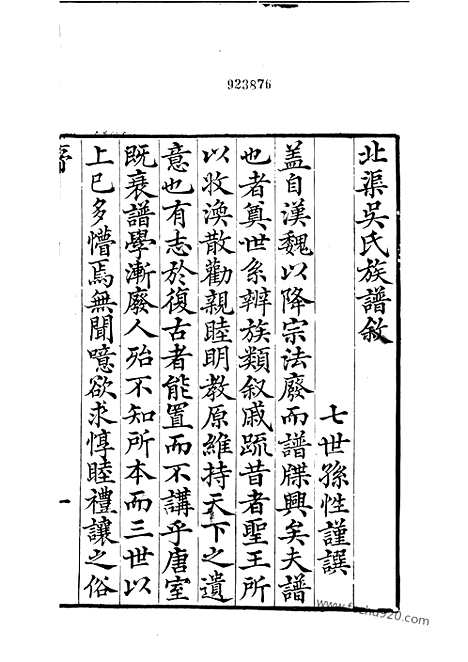 923876
北渠吳氏族譜敘
七世孫性謹譔
蓋自漢魏以降宗法廢而譜牒興矣夫譜
也者奠世系辨族類叙戚疏昔者聖王所
以收渙散勸親睦明教原維持天下之遺
意也有志於復古者能置而不講乎唐室
既衰譜學漸廢人殆不知所本而三世以
上已多懵焉無聞噫欲求惇睦禮讓之俗
一